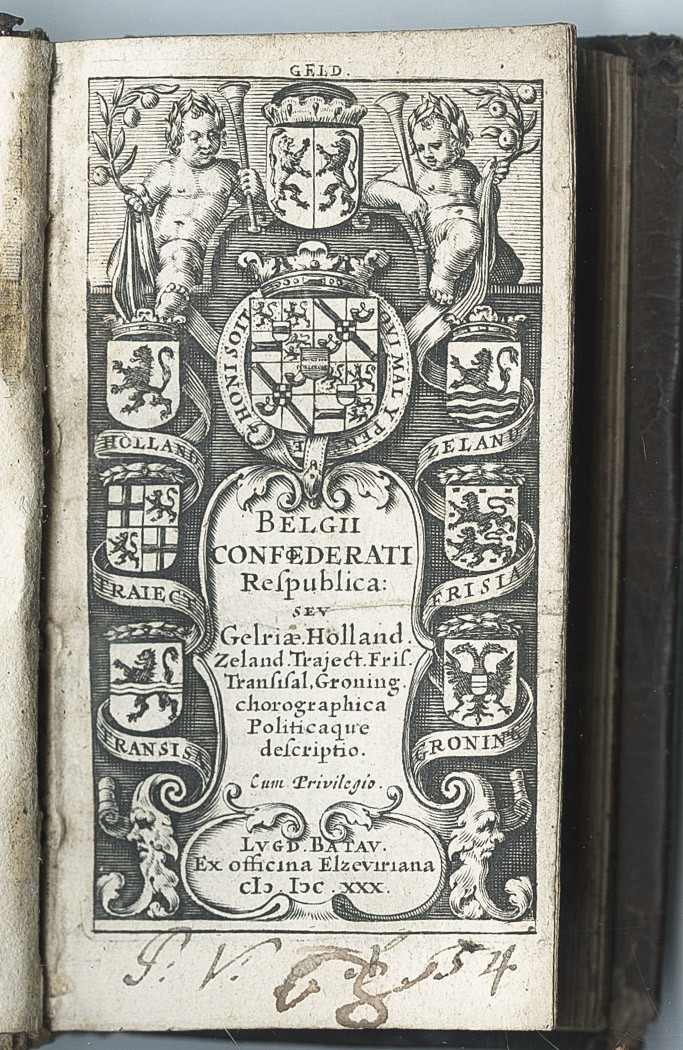 GELD.
HONI SOIT QVI MAL Y PEN
HOLLAND
ZELAND
TRAIECT
FRISIA
TRANSISA
GRONING
BELGII
CONFŒDERATI
Reſpublica:
SEV
Gelriæ. Holland.
Zeland. Traject. Friſ.
Tranſiſal, Groning.
chorographica
Politicaque
deſcriptio.
Cum Privilegio.
LVGD. BATAV.
Ex officina Elzeviriana
cIↄ. Iↄc. xxx.
P. V.
54